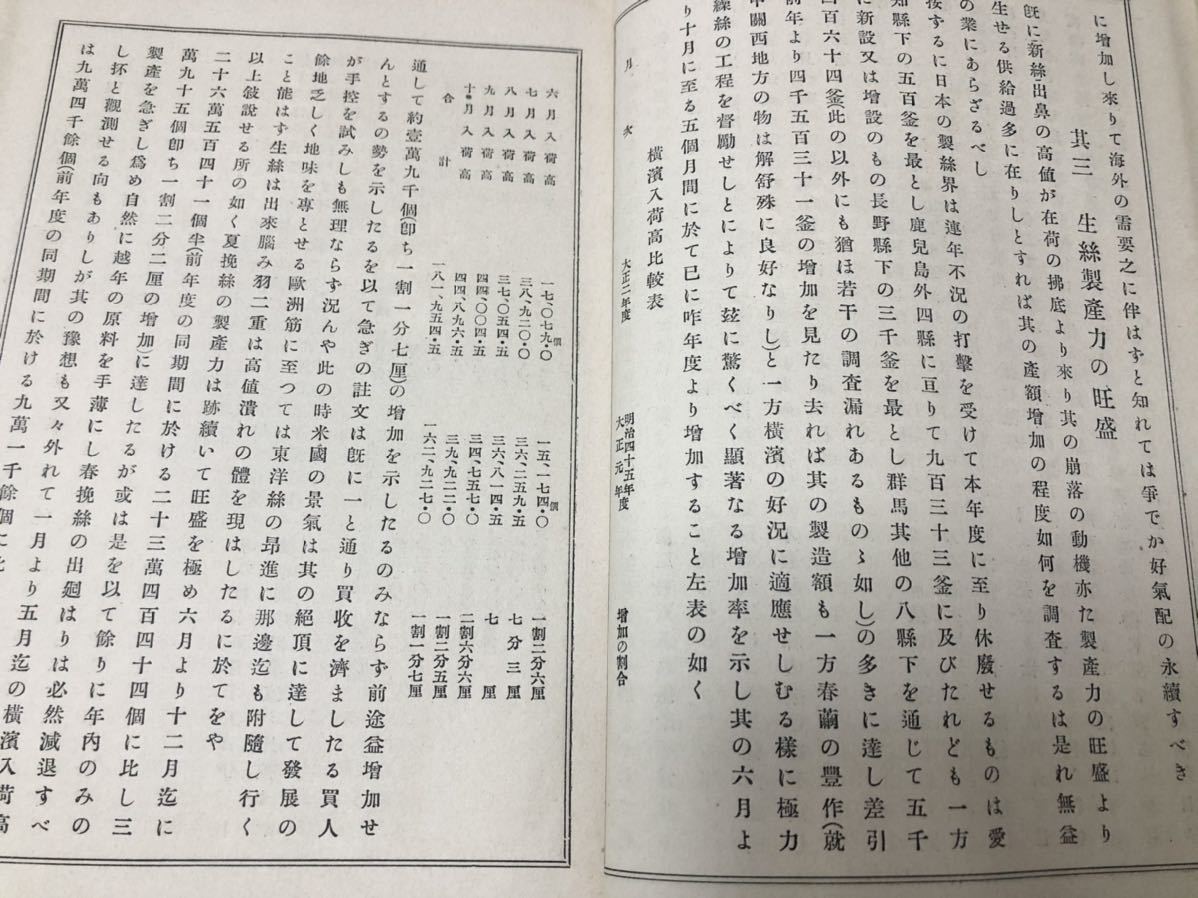 に增加し來りて海外の需要之に伴はずと知れては爭でか好氣配の永續すべき
其三　生絲製產力の旺盛
旣に新絲出鼻の高値が在荷の拂底より來り其の崩落の動機亦た製產力の旺盛より
生せる供給過多に在りしとすれば其の產額增加の程度如何を調査するは是れ無益
の業にあらざるべし
按するに日本の製絲界は連年不況の打擊を受けて本年度に至り休廢せるものは愛
知縣下の五百釜を最とし鹿兒島外四縣に亘りて九百三十三釜に及びたれども一方
に新設又は增設のもの長野縣下の三千釜を最とし群馬其他の八縣下を通じて五千
四百六十四釜(此の以外にも猶ほ若干の調査漏れあるものゝ如し)の多きに達し差引
前年より四千五百三十一釜の增加を見たり去れば其の製造額も一方春繭の豐作(就
中關西地方の物は解舒殊に良好なりし)と一方橫濱の好況に適應せしむる樣に極力
繰絲の工程を督勵せしとによりて玆に驚くべく顯著なる增加率を示し其の六月よ
り十月に至る五個月間に於て已に昨年度より增加すること左表の如く
橫濱入荷高比較表
月次　大正二年度　明治四十五年度大正元年　增加の割合
六月入荷高　一七、〇七九・〇個　一五、一七四・〇個　一割二分六厘
七月入荷高　三八、九二〇・〇　三六、二五九・五　七分三厘
八月入荷高　三七、〇五四・五　三六、八一四・五　七厘
九月入荷高　四四、〇〇四・五　三四、七五七・〇　二割六分六厘
十月入荷高　四四、八九六・五　三九、九二二・〇　一割二分五厘
合計　一八一、九五四・五　一六二、九二七・〇　一割一分七厘
通して約壹萬九千個(卽ち一割一分七厘)の增加を示したるのみならず前途益增加せ
んとするの勢を示したるを以て急ぎの註文は旣に一と通り買收を濟ましたる買人
が手控を試みしも無理ならず況んや此の時米國の景氣は其の絕頂に達して發展の
餘地乏しく地味を專とせる歐洲筋に至つては東洋絲の昂進に那邊迄も附隨し行く
こと能はず生絲は出來腦み羽二重は高値潰れの體を現はしたるに於てをや
以上敍說せる所の如く夏挽絲の製產力は跡續いて旺盛を極め六月より十二月迄に
二十六萬五百四十一個半(前年度の同期間に於ける二十三萬四百四十四個に比し三
萬九十五個卽ち一割二分二厘の增加)に達したるが或は是を以て餘りに年內のみの
製產を急ぎし爲め自然に越年の原料を手薄にし春挽絲の出廻はりは必然減退すべ
し抔と觀測せる向もありしが其の豫想も又々外れて一月より五月迄の橫濱入荷高
は九萬四千餘個(前年度の同期間に於ける九萬一千餘個に比